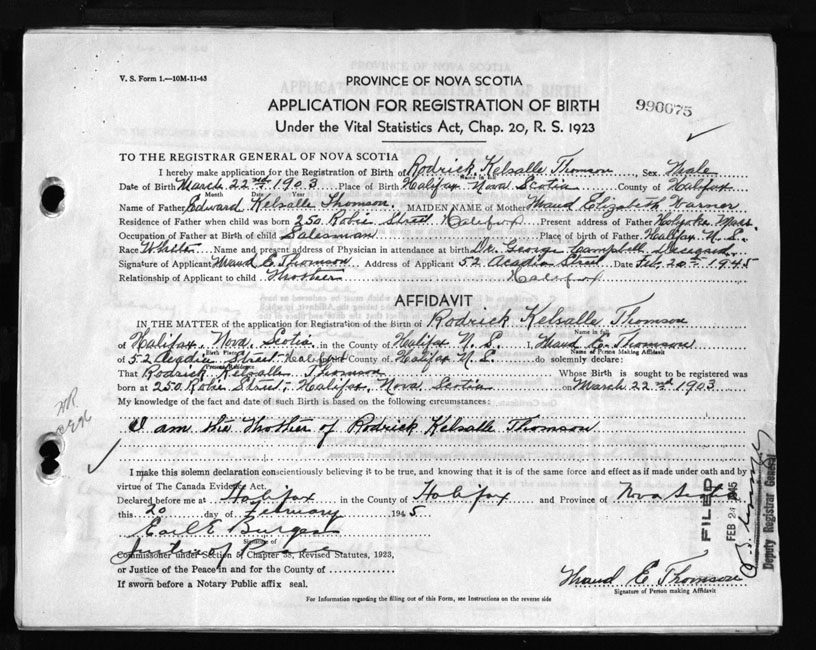 V. S. Form 1.—10M-11-43
PROVINCE OF NOVA SCOTIA
APPLICATION FOR REGISTRATION OF BIRTH
990075
Under the Vital Statistics Act, Chap. 20, R. S. 1923
TO THE REGISTRAR GENERAL OF NOVA SCOTIA
I hereby make application for the Registration of Birth of Rodrick Kelsalle Thomson Sex Male
Name in full
Date of Birth March 22nd 1903 Place of Birth Halifax Nova Scotia County of Halifax
Month Day Year
Name of Father Edward Kelsalle Thomson. MAIDEN NAME of Mother Maud Elizabeth Warner
Residence of Father when child was born 250 Robie Street Halifax Present address of Father Holyoke Mass.
Occupation of Father at Birth of child Salesman Place of birth of Father Halifax N. S.
Race White Name and present address of Physician in attendance at birth Dr. George Campbell Deceased
Signature of Applicant Maud E Thomson Address of Applicant 52 Acadia Street Date Feb. 20th 1945
Relationship of Applicant to child Mother Halifax
AFFIDAVIT
IN THE MATTER of the application for Registration of the Birth of Rodrick Kelsalle Thomson
Name in full
of Halifax, Nova Scotia in the County of Halifax N. S. I, Maud E. Thomson
Birth Place
Name of Person Making Affidavit
of 52 Acadia Street Halifax County of Halifax N. S. do solemnly declare:
Present Residence
That Rodrick Kelsalle Thomson Whose Birth is sought to be registered was
born at 250 Robie Street, Halifax, Nova Scotia on March 22nd 1903
My knowledge of the fact and date of such Birth is based on the following circumstances:
I am the Mother of Rodrick Kelsalle Thomson
I make this solemn declaration conscientiously believing it to be true, and knowing that it is of the same force and effect as if made under oath and by
virtue of The Canada Evidence Act.
Declared before me at Halifax in the County of Halifax and Province of Nova Scotia
this 20 day of February 1945
Earl E Burgess
Signature of
Justice of Peace
Commissioner under Section 5 Chapter 38, Revised Statutes, 1923,
or Justice of the Peace in and for the County of
If sworn before a Notary Public affix seal.
Maud E Thomson
Signature of Person making Affidavit
For Information regarding the filling out of this Form, see Instructions on the reverse side
FILED
FEB 24 1945
Deputy Registrar General